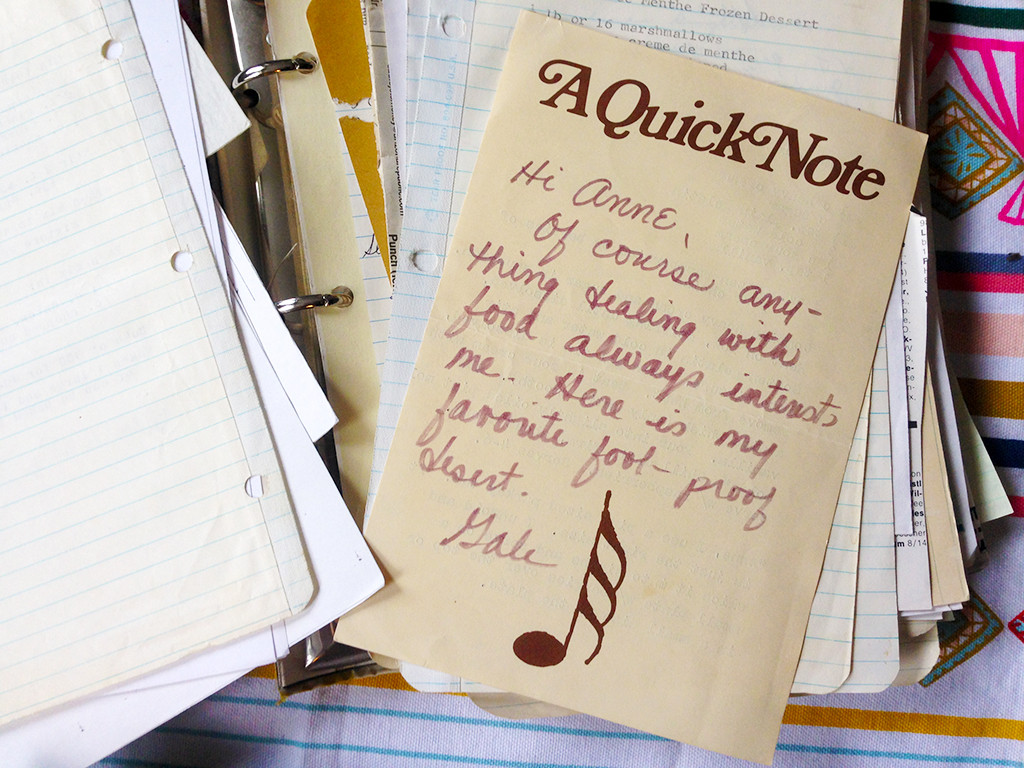 Menthe Frozen Dessert
lb or 16 marshmallows
creme de menthe
A Quick Note
Hi Anne,
Of course any-
thing dealing with
food always interests
me. Here is my
favorite fool-proof
desert.
Gale
Punch
8/14